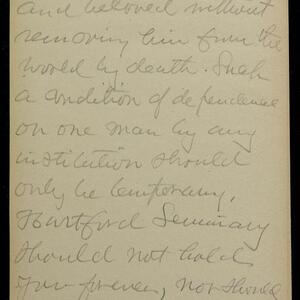 and beloved without
removing him from the
world by death. Such
a condition of dependence
on one man by any
institution should
only be temporary.
Hartford Seminary
should not hold
you forever, nor should